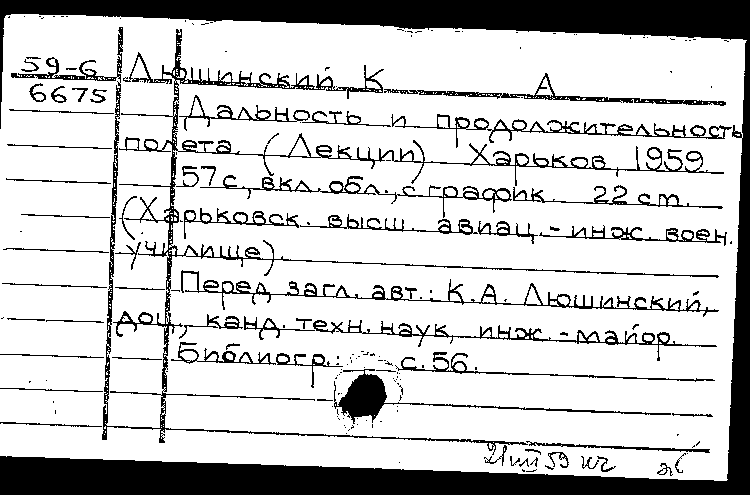 59-6 Люшинский, К А
6675
Дальность и продолжительность
полета. (Лекции) Харьков, 1959.
57 с., вкл. обл., с график. 22 см.
(Харьковск. высш. авиац.-инж. воен.
училище).
Перед загл. авт.: К.А. Люшинский,
доц., канд. техн. наук, инж.-майор.
Библиогр.: с. 56.
21 VII 59